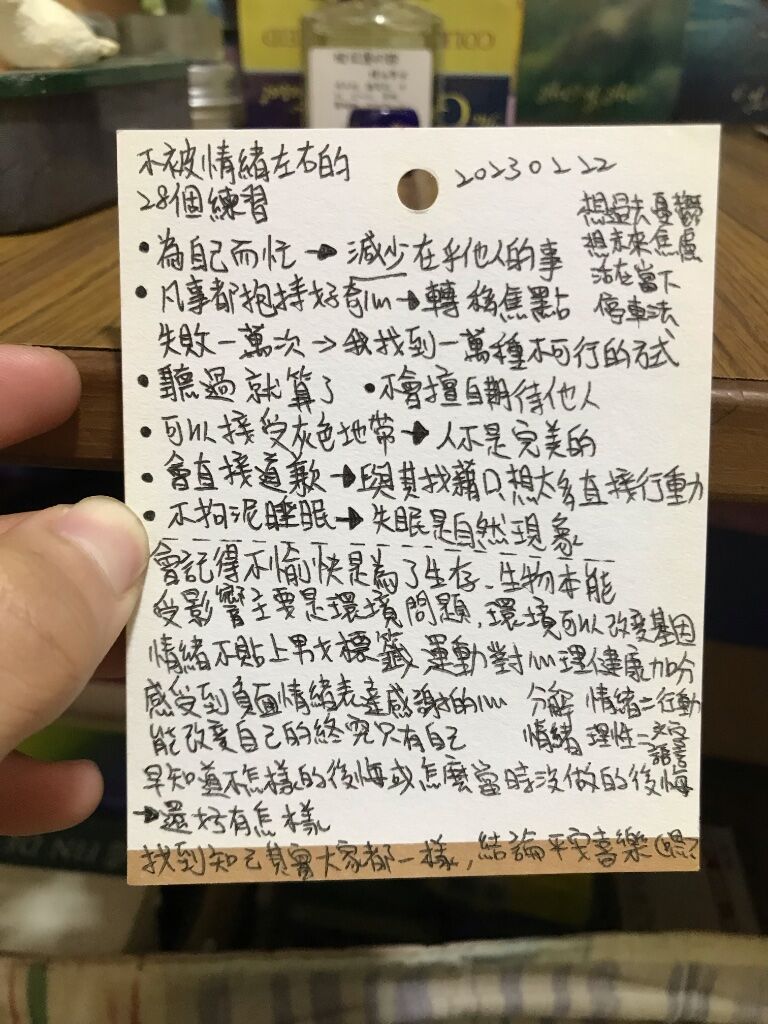 不被情緒左右的
28個練習
20230222
想過去憂鬱
想未來焦慮
活在當下
停車法
•為自己而忙→減少在乎他人的事
•凡事都抱持好奇心→轉移焦點
失敗一萬次→我找到一萬種不可行的方式
•聽過就算了 •不會擅自期待他人
•可以接受灰色地帶→人不是完美的
•會直接道歉→與其找藉口想太多直接行動
•不拘泥睡眠→失眠是自然現象
會記得不愉快是為了生存、生物本能
受影響主要是環境問題,環境可以改變基因
情緒不貼上男女標籤 運動對心理健康加分
感受到負面情緒表達感謝的心 分解 情緒=行動
能改變自己的終究只有自己 情緒 理性=文字語言
早知道不怎樣的後悔或怎麼當時沒做的後悔
→還好有怎樣
找到知己其實大家都一樣,結論平安喜樂